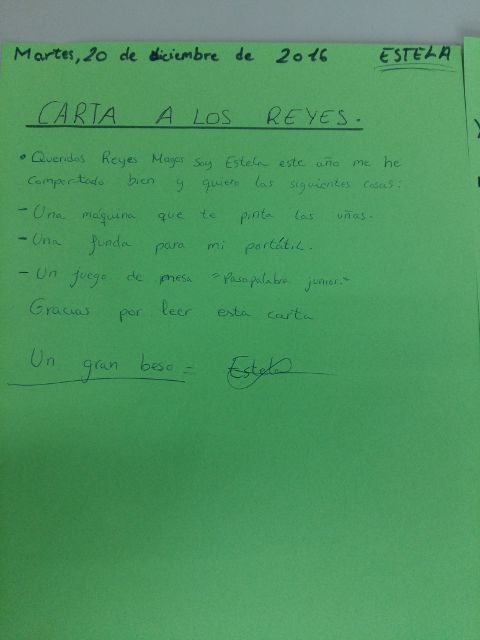 Martes, 20 de diciembre de 2016 ESTELA
CARTA A LOS REYES.
• Queridos Reyes Magos soy Estela este año me he
comportado bien y quiero las siguientes cosas:
- Una máquina que te pinta las uñas.
- Una funda para mi portátil.
- Un juego de mesa "Pasapalabra junior."
Gracias por leer esta carta
Un gran beso = Estela